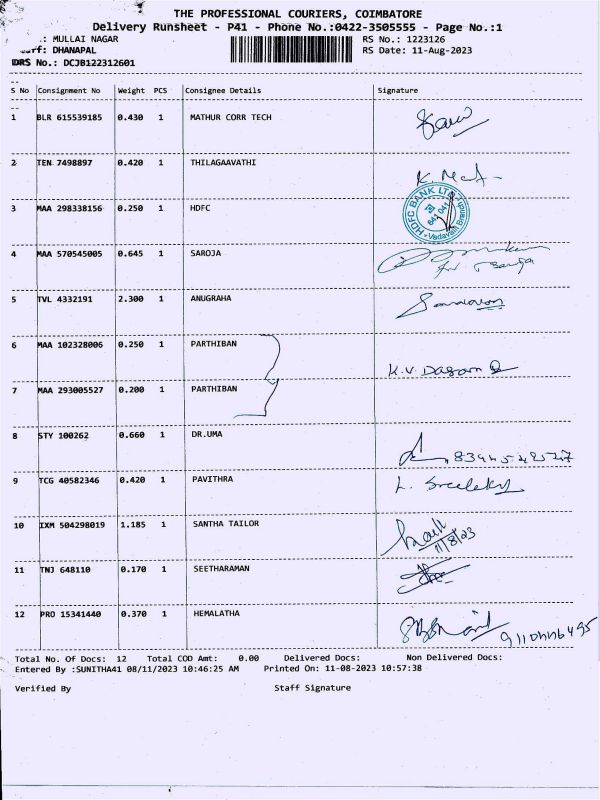 THE PROFESSIONAL COURIERS, COIMBATORE
Delivery Runsheet - P41 - Phone No.:0422-3505555 - Page No.:1
.: MULLAI NAGAR RS No.: 1223126
rf: DHANAPAL RS Date: 11-Aug-2023
DRS No.: DCJB122312601
S No Consignment No Weight PCS Consignee Details Signature
1 BLR 615539185 0.430 1 MATHUR CORR TECH
2 TEN 7498897 0.420 1 THILAGAAVATHI
3 MAA 298338156 0.250 1 HDFC HDFC BANK LTD
4 MAA 570545005 0.645 1 SAROJA
5 TVL 4332191 2.300 1 ANUGRAHA
6 MAA 102328006 0.250 1 PARTHIBAN
K.V.
7 MAA 293005527 0.200 1 PARTHIBAN
8 STY 100262 0.660 1 DR.UMA
9 TCG 40582346 0.420 1 PAVITHRA L.
10 IXM 504298019 1.185 1 SANTHA TAILOR
11/8/23
11 TNJ 648110 0.170 1 SEETHARAMAN
12 PRO 15341440 0.370 1 HEMALATHA
Total No. Of Docs: 12 Total COD Amt: 0.00 Delivered Docs: Non Delivered Docs:
Entered By :SUNITHA41 08/11/2023 10:46:25 AM Printed On: 11-08-2023 10:57:38
Verified By Staff Signature